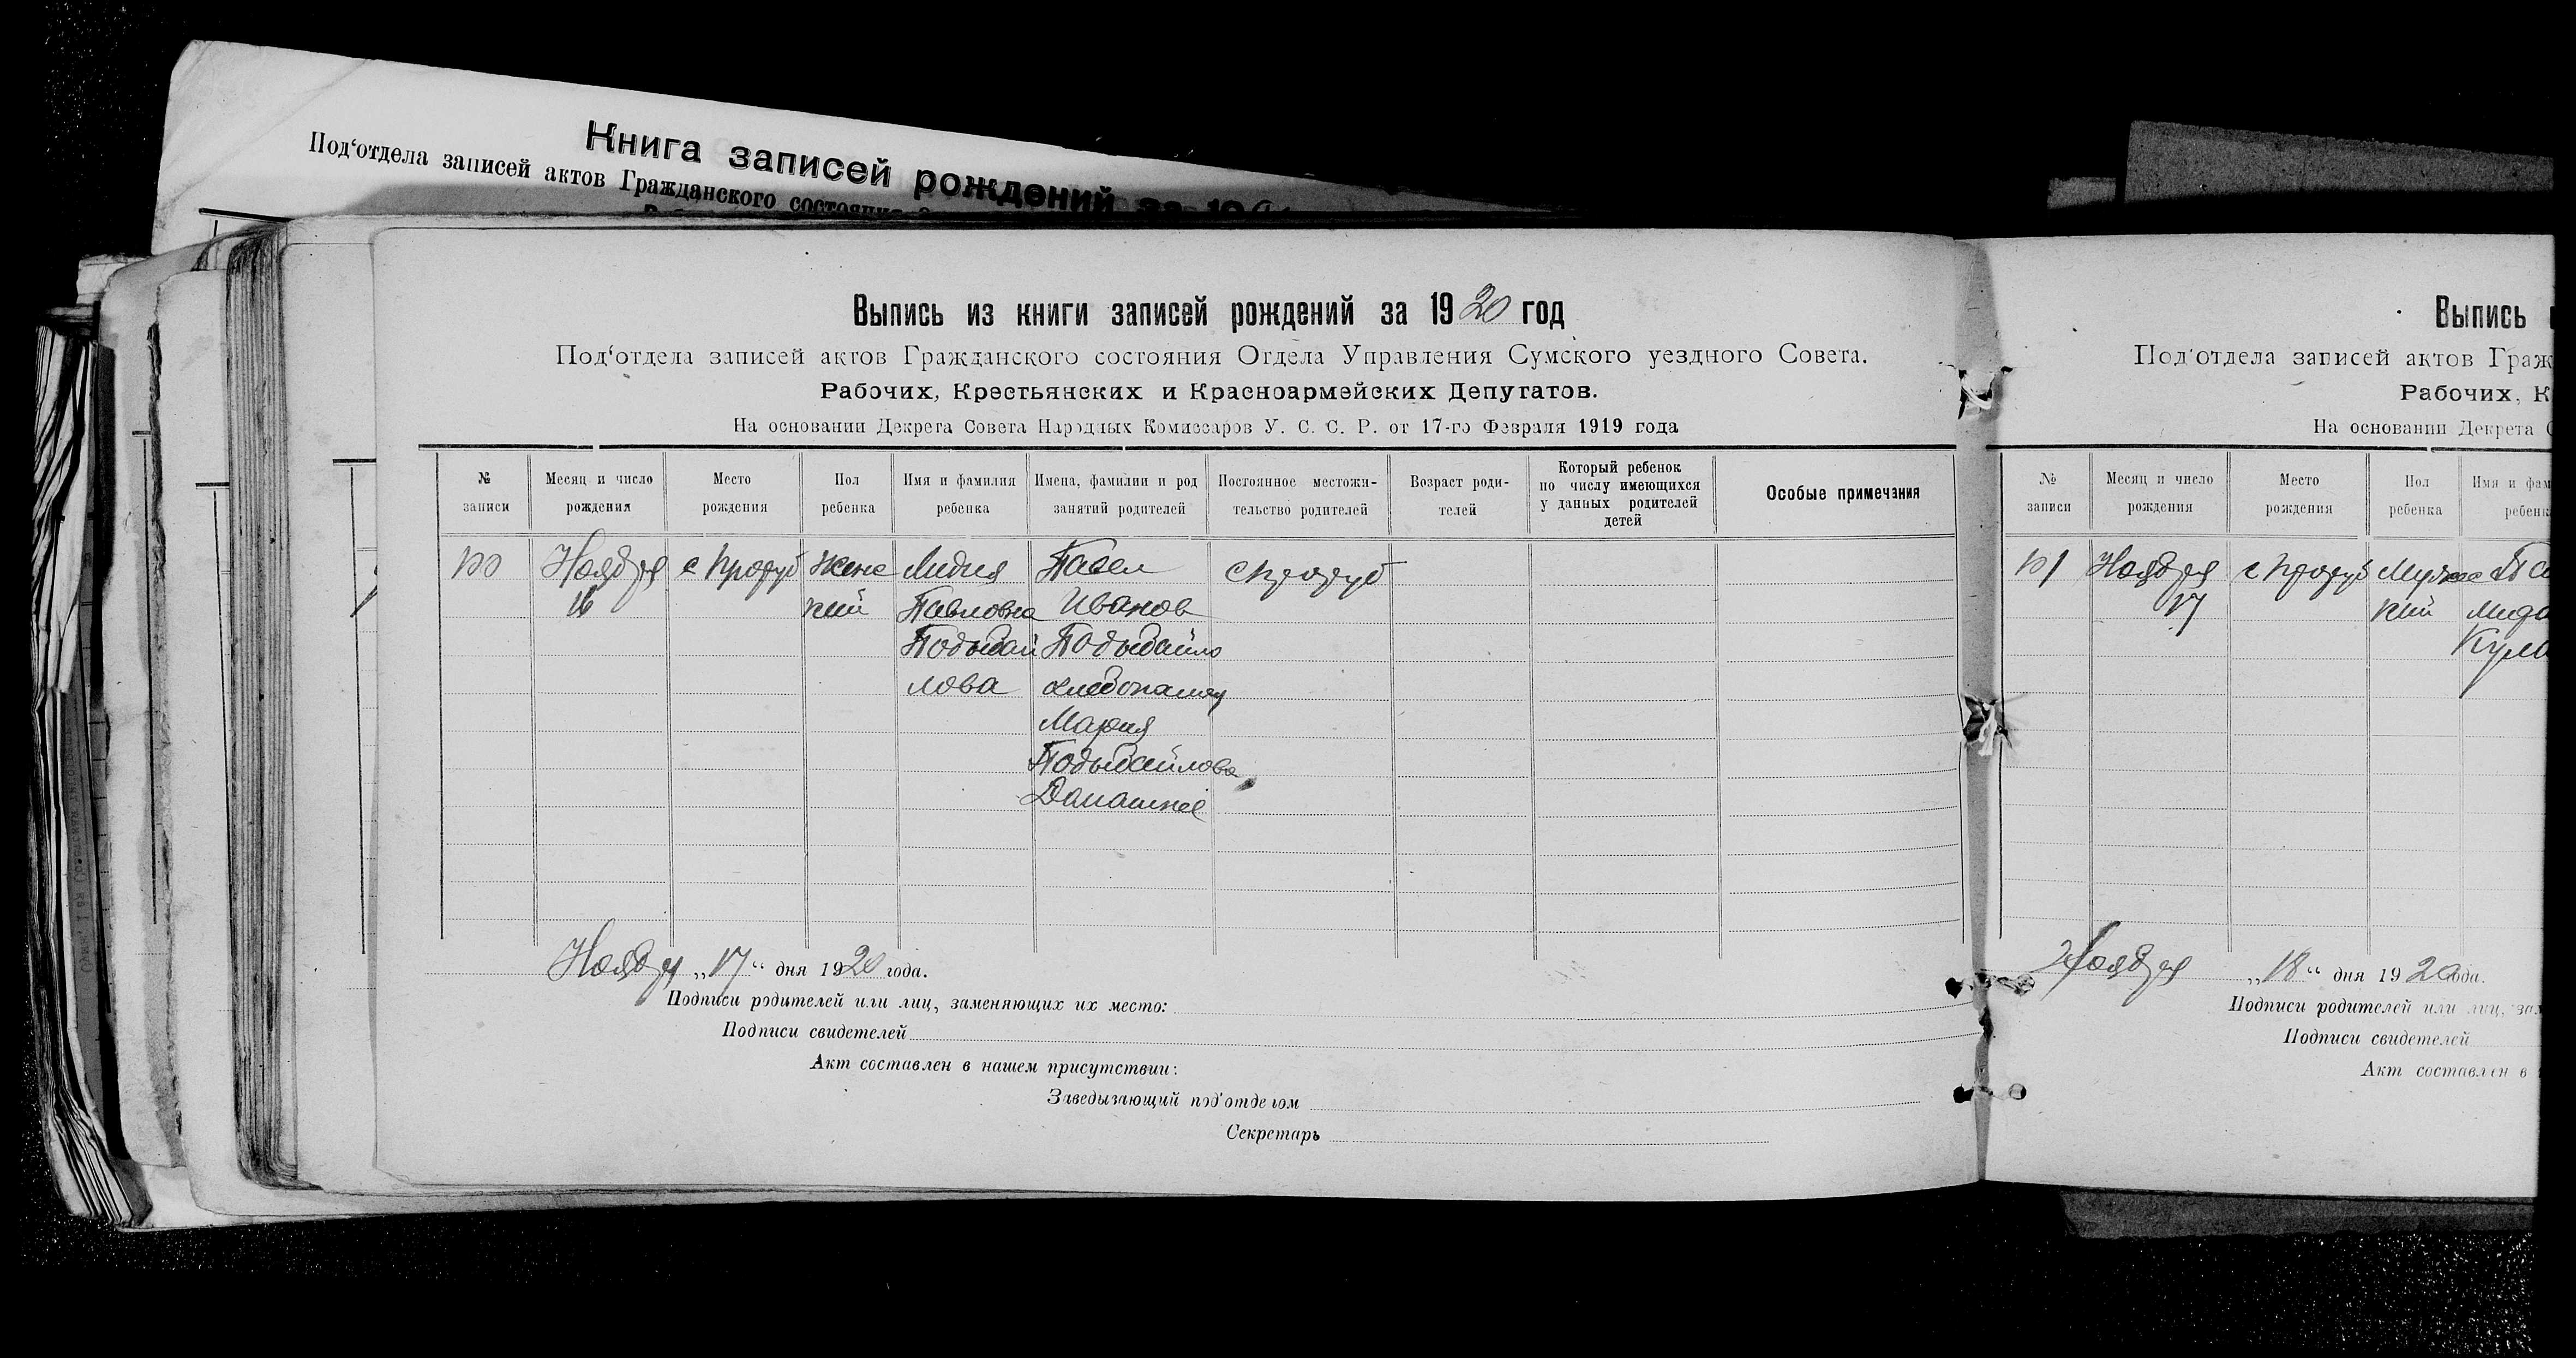 Книга записей рождений за 19
Под‘отдела записей актов Гражданского состояния
Выпись из книги записей рождений за 1920 год
Под‘отдела записей актов Гражданского состояния Отдела Управления Сумского уездного Совета.
Рабочих, Крестьянских и Красноармейских Депутатов.
На основании Декрета Совета Народных Комиссаров У. С. С. Р. от 17-го Февраля 1919 года
№ записи
Месяц и число рождения
Место рождения
Пол ребенка
Имя и фамилия ребенка
Имена, фамилии и род занятий родителей
Постоянное местожи-
тельство родителей
Возраст роди-
телей
Который ребенок
по числу имеющихся
у данных родителей
детей
Особые примечания
100
Ноября
16
с Проруб
Женс
кий
Лидия
Павловна
Подывай
лова
Павел
Иванов
Подывайло
хлебопашец
Мария
Подывайлова
с Проруб
Ноября „17“ дня 1920 года.
Подписи родителей или лиц, заменяющих их место:
Подписи свидетелей
Акт составлен в нашем присутствии:
Заведывающий под‘отделом
Секретарь
Выпись
Под‘отдела записей актов Граж
Рабочих, К
На основании Декрета С
№ записи
Месяц и число рождения
Место рождения
Пол ребенка
Имя и фам
ребенк
101
Ноября
17
с Проруб
Мужс
кий
Ноября „18“ дня 1920 года.
Подписи родителей или лиц, зам
Подписи свидетелей
Акт составлен в